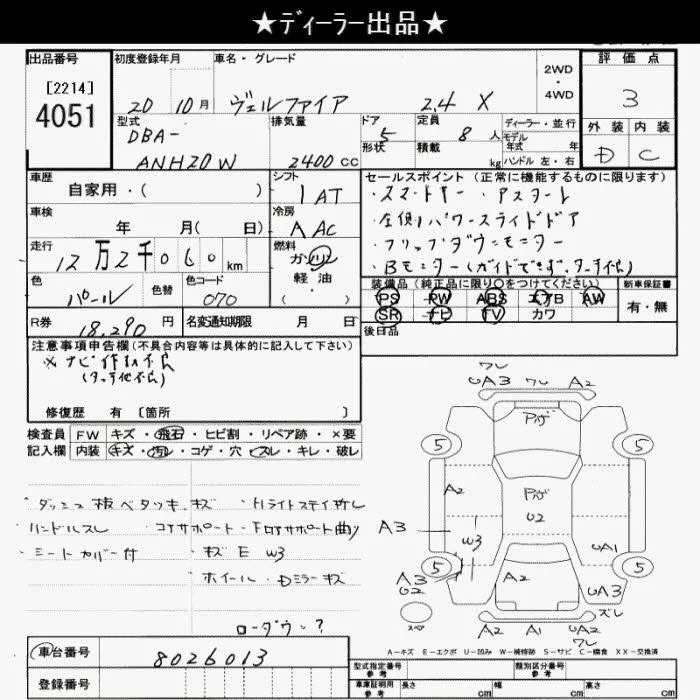 ★ディーラー出品★
出品番号 初度登録年月 車名・グレード 2WD・4WD 評価点
[2214]
4051
20 10月 ヴェルファイア 2.4 X 3
型式 排気量 ドア 定員 ディーラー・並行 外装 内装
DBA- 5 8人 モデル年式 年 D C
ANH20W 2400cc 形状 積載 kg ハンドル 左・右
車歴 シフト セールスポイント (正常に機能するものに限ります)
自家用・( ) 1AT ・スマートキー・アスタート
車検 冷房 ・左側パワースライドドア
年 月( 日) AAC ・フリップダウンモニター
走行 燃料 ・Bモニター(ガイドできず、タッチ不良)
12万2千060km ガソリン・軽油
色 色替 色コード 装備品 (純正品に限り○をつけてください) 新車保証書
パール 070 PS PW ABS エアB AW 有・無
R券 名変通知期限 月 日 SR ナビ TV カワ
18,290円 後日品
注意事項申告欄(不具合内容等は具体的に記入して下さい)
※ナビ作動不良
(タッチ他不良)
修復歴 有 [箇所 ]
検査員 FW キズ・飛石・ヒビ割・リペア跡・×要
記入欄 内装 キズ・汚れ・コゲ・穴・スレ・キレ・破レ
・ダッシュ板ベタツキ、キズ ・Hライトステイ折レ
ハンドルスレ ・コアサポート・Fロアサポート曲り
・シートカバー付 ・キズ E W3
・ホイール・Dミラーキズ
ローダウン・?
ワレ
UA3 ワレ A2
アゲ
5 5
A2
アゲ
U2
A3
W3 UA1
5 5
A3 A2
U2 UA3
スペア ズレ
A2 A1 UA2
ワレ
A-キズ E-エクボ U-凹み W-補修跡 S-サビ C-腐食 XX-交換済
車台番号 8026013
型式指定番号 参考 類別区分番号 参考
登録番号 車庫証明用 参考 長さ cm 幅 cm 高さ cm